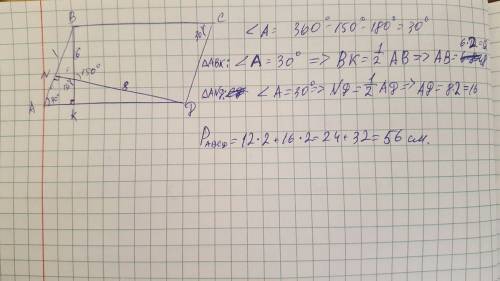 B
C
30°
6
N
150°
8
A
30°
K
D
∠A = 360° - 150° - 180° = 30°
△ABK: ∠A = 30° => BK = 1/2 AB => AB =
6·2=12
∠A = 30° => ND = 1/2 AD => AD = 8·2 = 16
P_ABCD = 12·2 + 16·2 = 24 + 32 = 56 см.